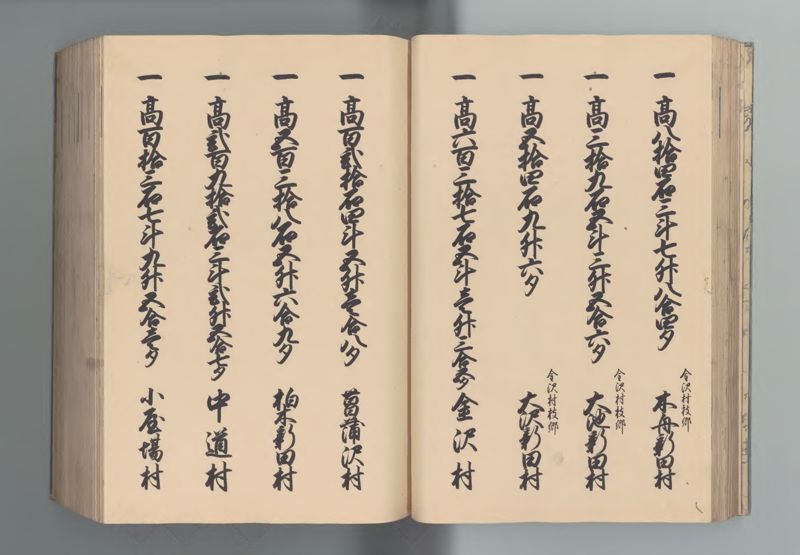 一 髙八拾四石三斗七升八合四夕 金沢村枝郷 木舟新田村
一 髙三拾九石五斗三升五合六夕 金沢村枝郷 大池新田村
一 髙五拾四石九升六夕 金沢村枝郷 大沢新田村
一 髙六百三拾七石五斗壱升三合五夕 金沢村
一 髙百弐拾石四斗五升壱合八夕 菖蒲沢村
一 髙五百三拾八石五升六合九夕 柏木新田村
一 髙弐百九拾弐石三斗弐升五合七夕 中道村
一 髙百拾三石七斗九升五合壱夕 小屋場村